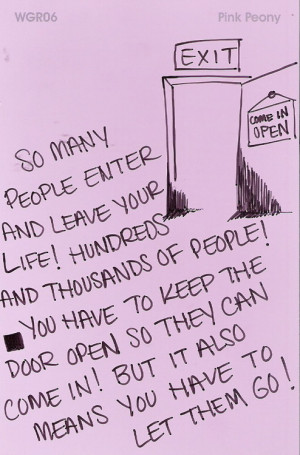 WGR06
Pink Peony
EXIT
COME IN
OPEN
SO MANY
PEOPLE ENTER
AND LEAVE YOUR
LIFE! HUNDREDS
AND THOUSANDS OF PEOPLE!
YOU HAVE TO KEEP THE
DOOR OPEN SO THEY CAN
COME IN! BUT IT ALSO
MEANS YOU HAVE TO
LET THEM GO!